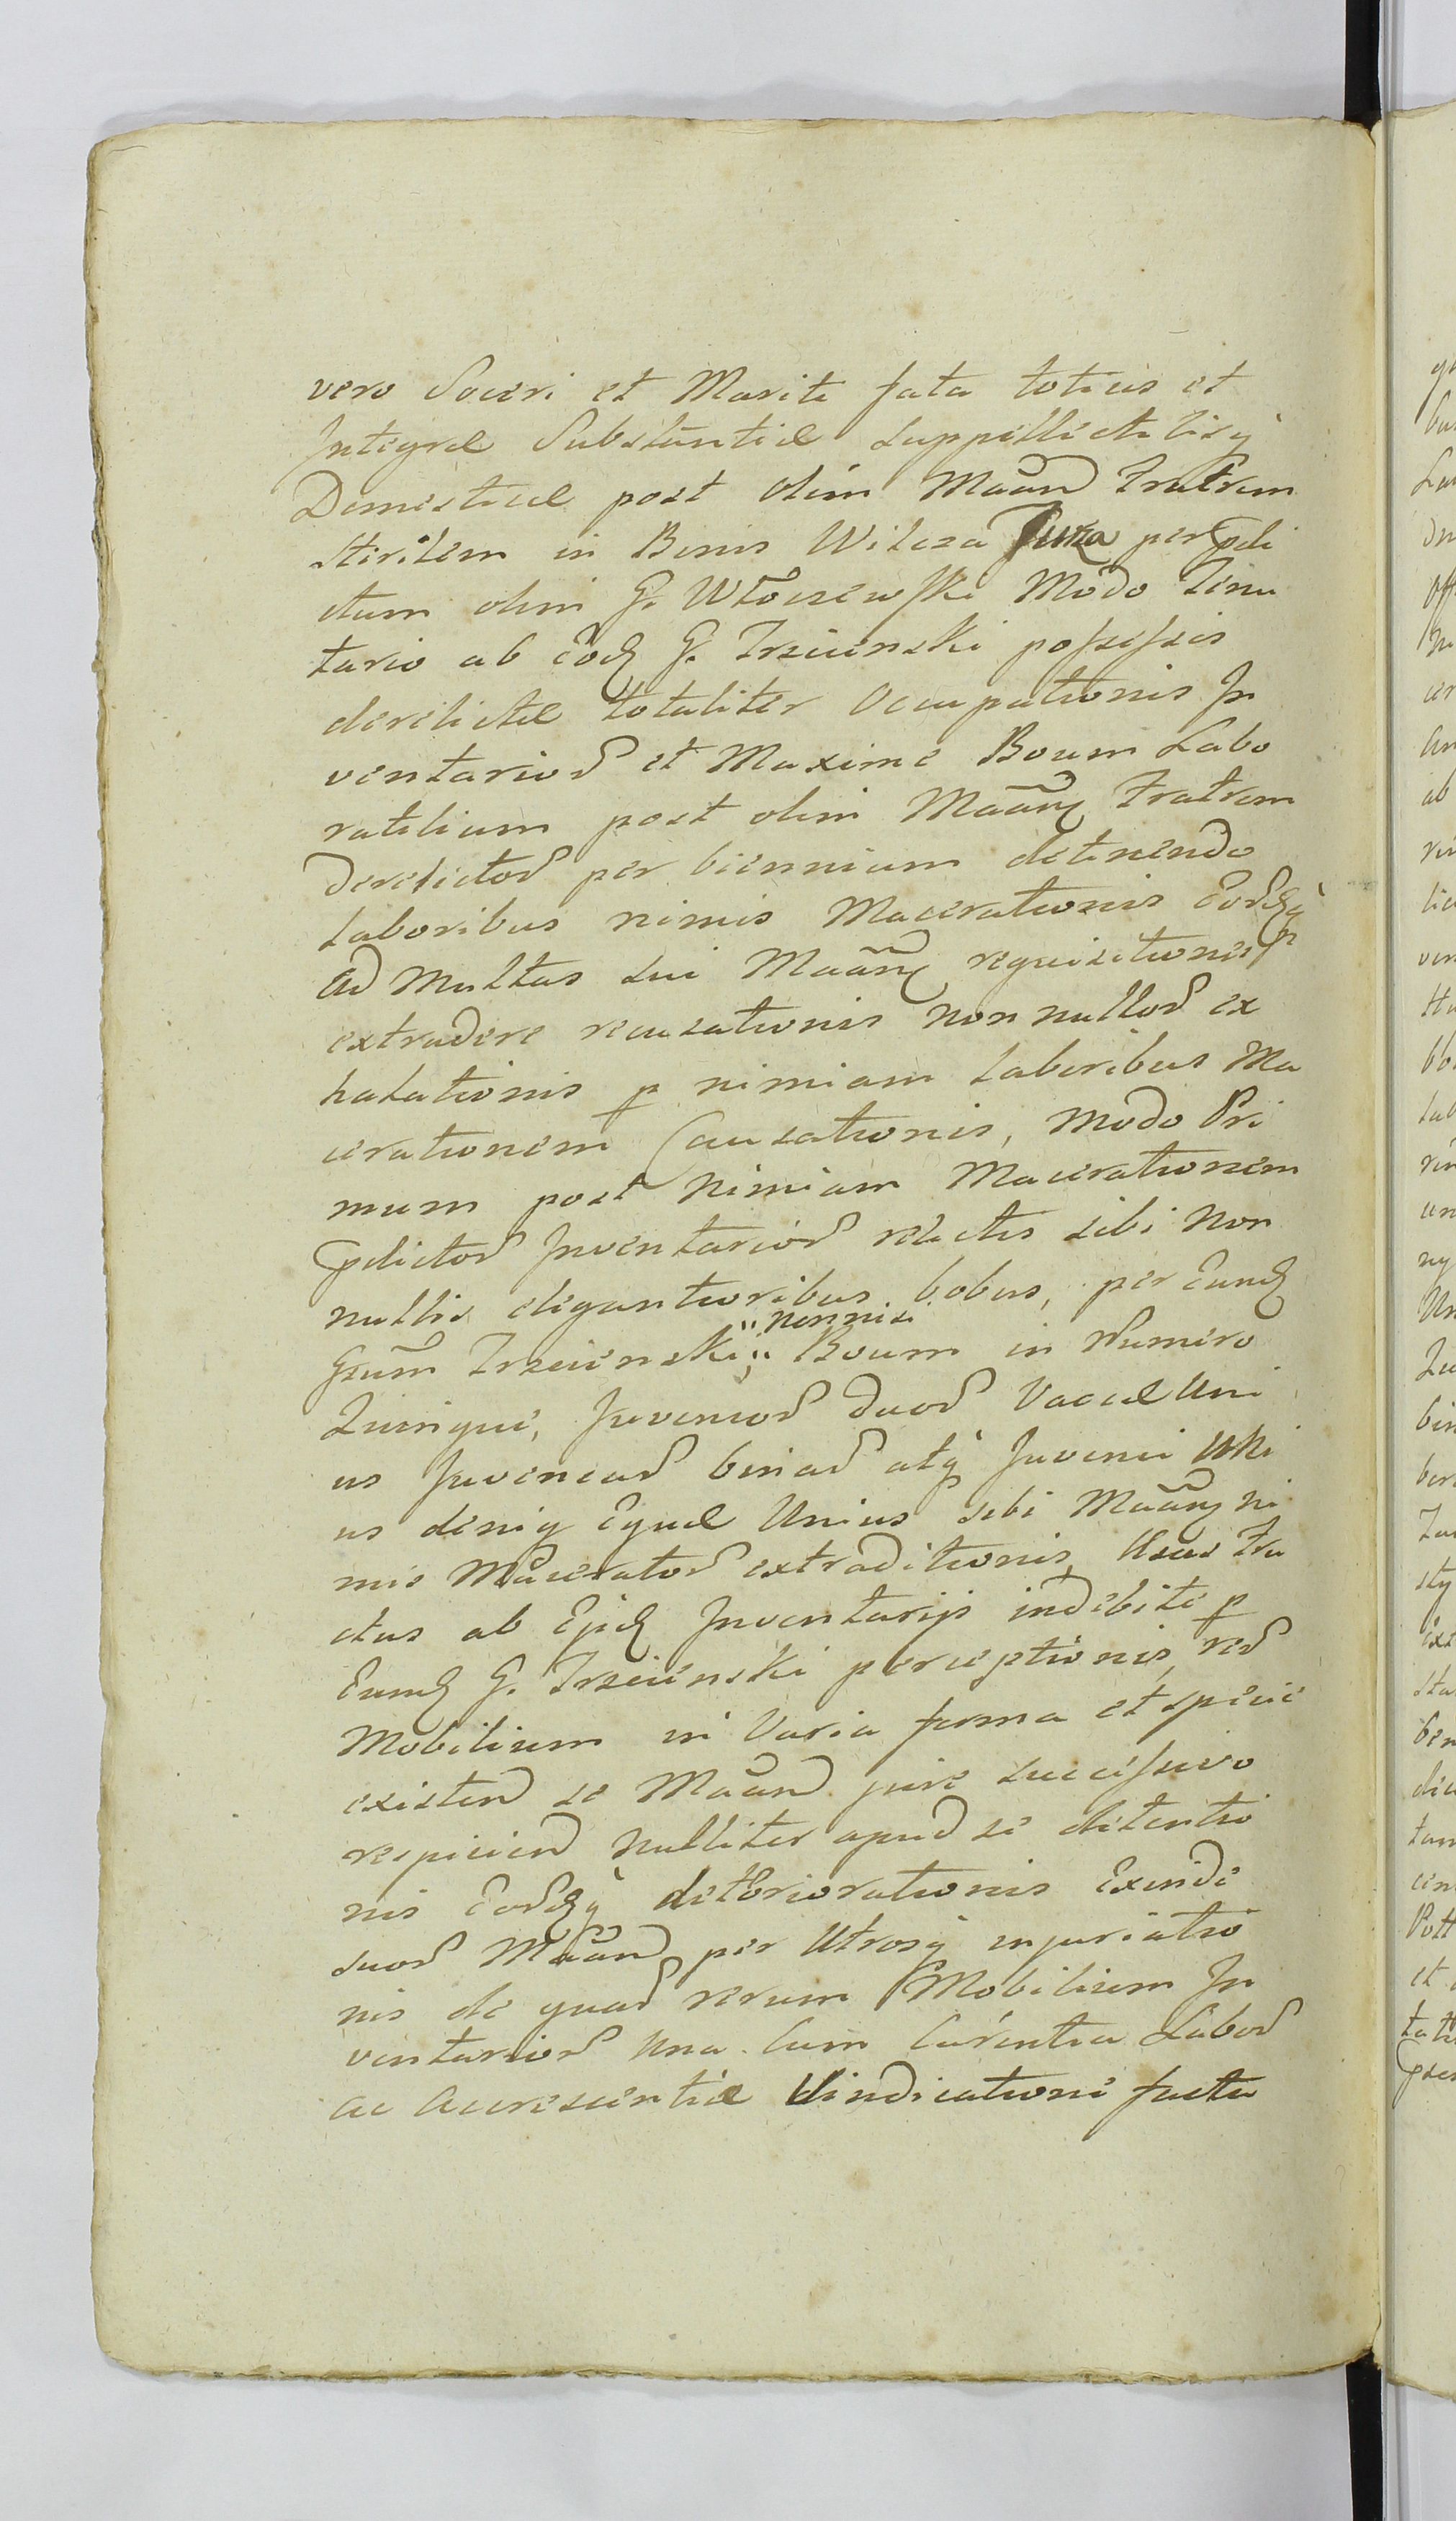 vero Soceri et Mariti fata totius et
Integræ Substantiæ suppellictilisq̀
Domesticæ post olim Maãnd Fratrem
sterilem in Bonis Wilcza Jurza per p̃di
ctum olim G. Włoczewski Modo tenu
tario ab Eod G. Trzcienski possessis
derelictæ totaliter Occupationis In
ventarior et Maxime Boum Labo
ratilium post olim Maãnd Fratrem
Derelictor per biennium detinendo
Laboribus nimis Macerationis Eordq̀
ad Multas sui Maãnd requisitiones p
extradere recusationis nonnullor ex
halationis p nimiam Laboribus Ma
cerationem Causationis, modo Pri
mum post Nimiam Macerationem
p̃dictor Inventarior relictis sibi Non
nullis eligantioribus bobus, per Eund
Gsum Trzcienski, nonnisi Boum in Numero
Quinque, Juvencor duor Vaccæ Uni
us Juvencar binar atq̀ Juvenci Uni
us deniq Equæ Unius sibi Maãnd ni
mis Macerator extraditionis, Usus fru
ctus ab Ejusd Inventarijs indebite p
Eund G. Trzcienski perceptionis, rer
Mobilium in Varia forma et specie
existend se Maãnd jure successivo
respiciend Nulliter apud se detentio
nis Eordq̀ deteriorationis Exinde
suor Maãnd per Utrosq̀ injuriatio
nis de quar rerum Mobilium In
ventarior Una Cum Carentia Labor
ac accrescentiæ Vindicatione facta